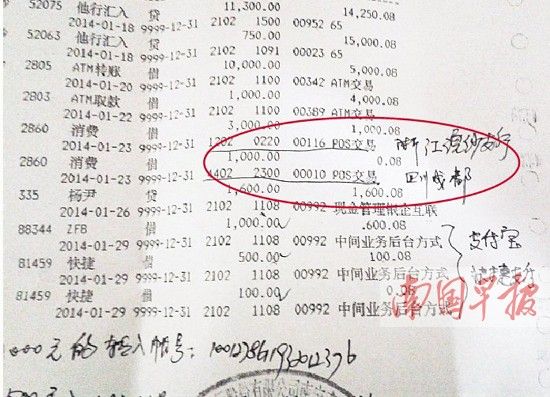 52075 他行汇入 贷 11,300.00 14,250.08
2014-01-18 9999-12-31 2102 1500 00952 65
52063 他行汇入 贷 750.00 15,000.08
2014-01-18 9999-12-31 2102 1091 00023 65
2805 ATM转账 借 10,000.00 5,000.08
2014-01-20 9999-12-31 2102 1100 00342 ATM交易
2803 ATM取款 借 1,000.00 4,000.08
2014-01-22 9999-12-31 2102 1100 00389 ATM交易
2860 消费 借 3,000.00 1,000.08
2014-01-23 9999-12-31 1202 0220 00116 POS交易 浙江
2860 消费 借 1,000.00 0.08
2014-01-23 9999-12-31 4402 2300 00010 POS交易 四川成都
335 杨尹 贷 1,600.00 1,600.08
2014-01-26 9999-12-31 2102 1108 00992 现金管理银企互联
88344 ZFB 借 1,000.00 600.08
2014-01-29 9999-12-31 2102 1108 00992 中间业务后台方式 支付宝
81459 快捷 借 500.00 100.08
2014-01-29 9999-12-31 2102 1108 00992 中间业务后台方式 快捷支付
81459 快捷 借 100.00 0.08
2014-01-29 9999-12-31 2102 1108 00992 中间业务后台方式
南国早报
000元的转入帐号: